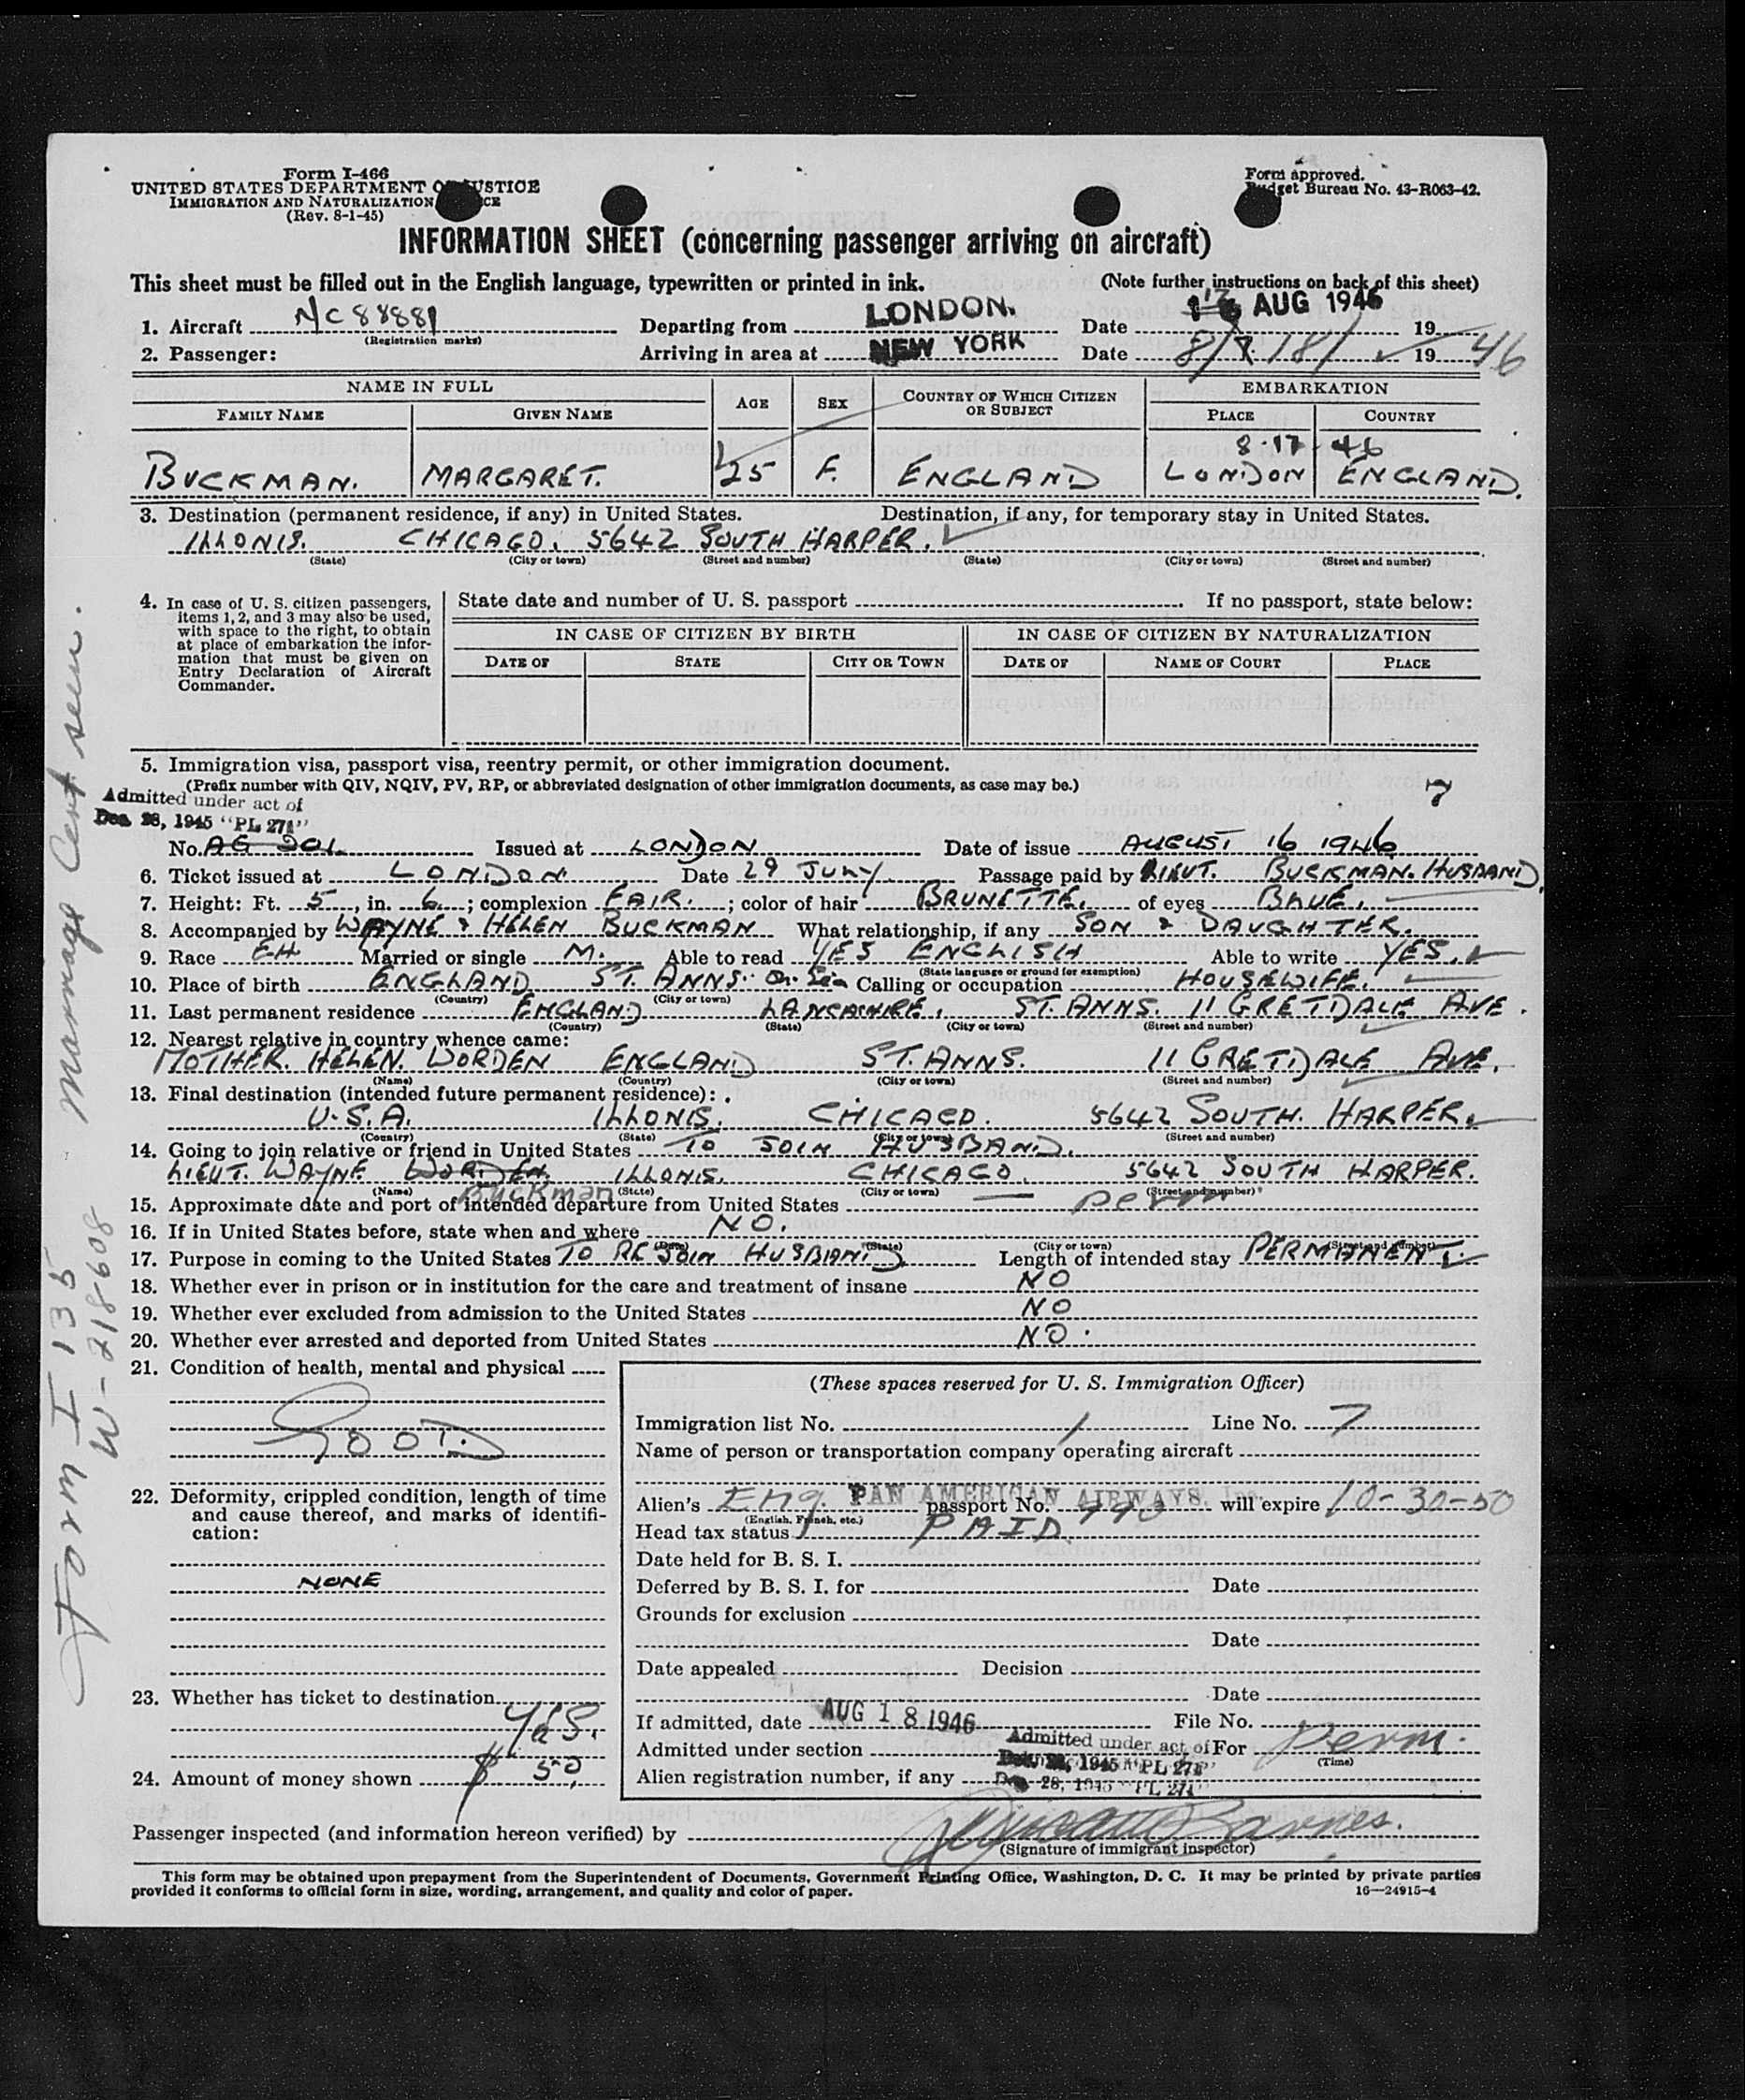 Form I-466
UNITED STATES DEPARTMENT OF JUSTICE
IMMIGRATION AND NATURALIZATION SERVICE
(Rev. 8-1-45)
Form approved.
Budget Bureau No. 43-R063-42.
INFORMATION SHEET (concerning passenger arriving on aircraft)
This sheet must be filled out in the English language, typewritten or printed in ink. (Note further instructions on back of this sheet)
1. Aircraft NC 88881 Departing from LONDON. Date AUG 1946 19
(Registration marks)
2. Passenger: Arriving in area at NEW YORK Date 8/ 18/ 1946
NAME IN FULL AGE SEX COUNTRY OF WHICH CITIZEN OR SUBJECT EMBARKATION
FAMILY NAME GIVEN NAME PLACE COUNTRY
8-17-46
BUCKMAN. MARGARET. 25 F. ENGLAND LONDON ENGLAND.
3. Destination (permanent residence, if any) in United States. Destination, if any, for temporary stay in United States.
ILLONIS. CHICAGO. 5642 SOUTH HARPER.
(State) (City or town) (Street and number) (State) (City or town) (Street and number)
4. In case of U. S. citizen passengers, items 1, 2, and 3 may also be used, with space to the right, to obtain at place of embarkation the information that must be given on Entry Declaration of Aircraft Commander.
State date and number of U. S. passport If no passport, state below:
IN CASE OF CITIZEN BY BIRTH IN CASE OF CITIZEN BY NATURALIZATION
DATE OF STATE CITY OR TOWN DATE OF NAME OF COURT PLACE
5. Immigration visa, passport visa, reentry permit, or other immigration document.
(Prefix number with QIV, NQIV, PV, RP, or abbreviated designation of other immigration documents, as case may be.) 7
Admitted under act of
Dec. 28, 1945 "PL 271"
No. AG 201 Issued at LONDON Date of issue AUGUST 16 1946
6. Ticket issued at LONDON Date 29 JULY Passage paid by LIEUT. BUCKMAN. HUSBAND.
7. Height: Ft. 5, in. 6; complexion FAIR.; color of hair BRUNETTE. of eyes BLUE.
8. Accompanied by WAYNE & HELEN BUCKMAN What relationship, if any SON & DAUGHTER.
9. Race EH Married or single M. Able to read YES ENGLISH Able to write YES.
(State language or ground for exemption)
10. Place of birth ENGLAND ST. ANNS. Calling or occupation HOUSEWIFE.
(Country) (City or town)
11. Last permanent residence ENGLAND LANCASHIRE. ST. ANNS. 11 GRETDALE AVE.
(Country) (State) (City or town) (Street and number)
12. Nearest relative in country whence came:
MOTHER. HELEN. WORDEN ENGLAND ST. ANNS. 11 GRETDALE AVE.
(Name) (Country) (City or town) (Street and number)
13. Final destination (intended future permanent residence):
U.S.A. ILLONIS. CHICAGO. 5642 SOUTH. HARPER.
(Country) (State) (City or town) (Street and number)
14. Going to join relative or friend in United States TO JOIN HUSBAND.
LIEUT. WAYNE WORDEN ILLONIS. CHICAGO. 5642 SOUTH HARPER.
(Name) Buckman (State) (City or town) (Street and number)
15. Approximate date and port of intended departure from United States — perm
16. If in United States before, state when and where NO.
(Date) (State) (City or town) (Street and number)
17. Purpose in coming to the United States TO REJOIN HUSBAND Length of intended stay PERMANENT.
18. Whether ever in prison or in institution for the care and treatment of insane NO
19. Whether ever excluded from admission to the United States NO
20. Whether ever arrested and deported from United States NO.
21. Condition of health, mental and physical
GOOD.
22. Deformity, crippled condition, length of time and cause thereof, and marks of identification:
NONE
23. Whether has ticket to destination
YES.
24. Amount of money shown $ 50
(These spaces reserved for U. S. Immigration Officer)
Immigration list No. 1 Line No. 7
Name of person or transportation company operating aircraft
PAN AMERICAN AIRWAYS, Inc.
Alien's Eng. passport No. 990 will expire 10-30-50
(English, French, etc.)
Head tax status PAID
Date held for B. S. I.
Deferred by B. S. I. for Date
Grounds for exclusion
Date
Date appealed Decision
Date
If admitted, date AUG 18 1946 File No.
Admitted under section Admitted under act of For Perm.
(Time)
Dec. 28, 1945 "PL 271"
Alien registration number, if any Dec. 28, 1945 "PL 271"
Passenger inspected (and information hereon verified) by Barnes.
(Signature of immigrant inspector)
This form may be obtained upon prepayment from the Superintendent of Documents, Government Printing Office, Washington, D. C. It may be printed by private parties
provided it conforms to official form in size, wording, arrangement, and quality and color of paper. 16—24915-4
Marriage Cert seen.
Form I 135
W-218608